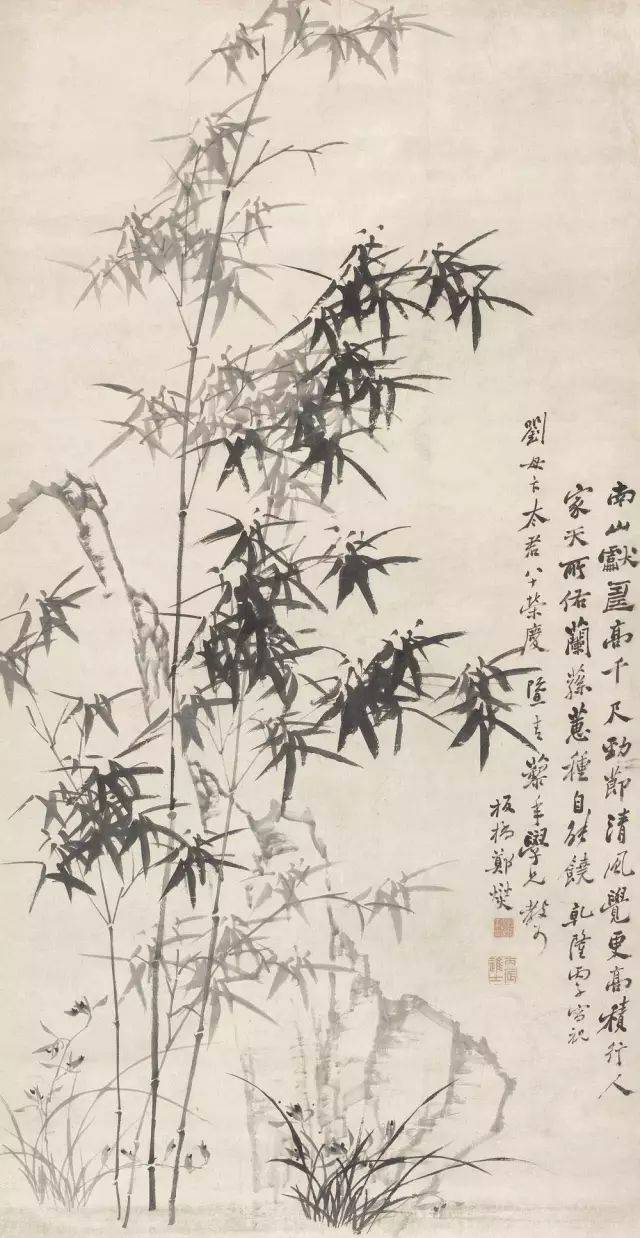 南山獻壽高千尺勁節清風覺更高積行人
家天所佑蘭蓀蕙種自能饒 乾隆丙子寫祝
劉母卞太君八十榮慶 暨青藜年學兄
板橋鄭燮
丙辰進士